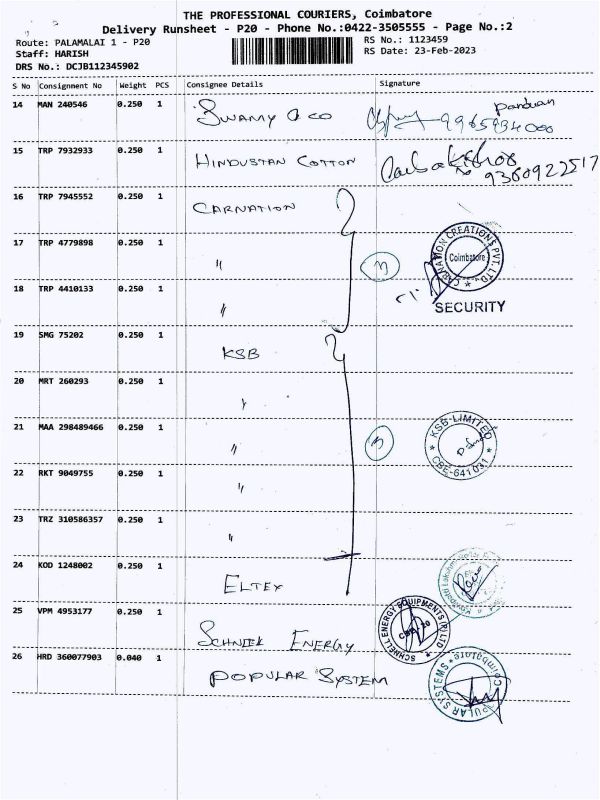 THE PROFESSIONAL COURIERS, Coimbatore
Delivery Runsheet - P20 - Phone No.:0422-3505555 - Page No.:2
Route: PALAMALAI 1 - P20
Staff: HARISH
DRS No.: DCJB112345902
RS No.: 1123459
RS Date: 23-Feb-2023
S No Consignment No Weight PCS Consignee Details Signature
14 MAN 240546 0.250 1 SWAMY & CO Pandian
15 TRP 7932933 0.250 1 HINDUSTAN COTTON 9360922517
16 TRP 7945552 0.250 1 CARNATION
17 TRP 4779898 0.250 1 "
18 TRP 4410133 0.250 1 "
CARNATION CREATIONS PVT. LTD.,
Coimbatore
SECURITY
19 SMG 75202 0.250 1 KSB
20 MRT 260293 0.250 1 "
21 MAA 298489466 0.250 1 "
KSB LIMITED
CBE-641 031
22 RKT 9049755 0.250 1 "
23 TRZ 310586357 0.250 1 "
24 KOD 1248002 0.250 1 ELTEX
25 VPM 4953177 0.250 1 ENERGY
SCHNELL ENERGY EQUIPMENTS (P) LTD
26 HRD 360077903 0.040 1 POPULAR SYSTEM
PULAR SYSTEMS
Coimbatore